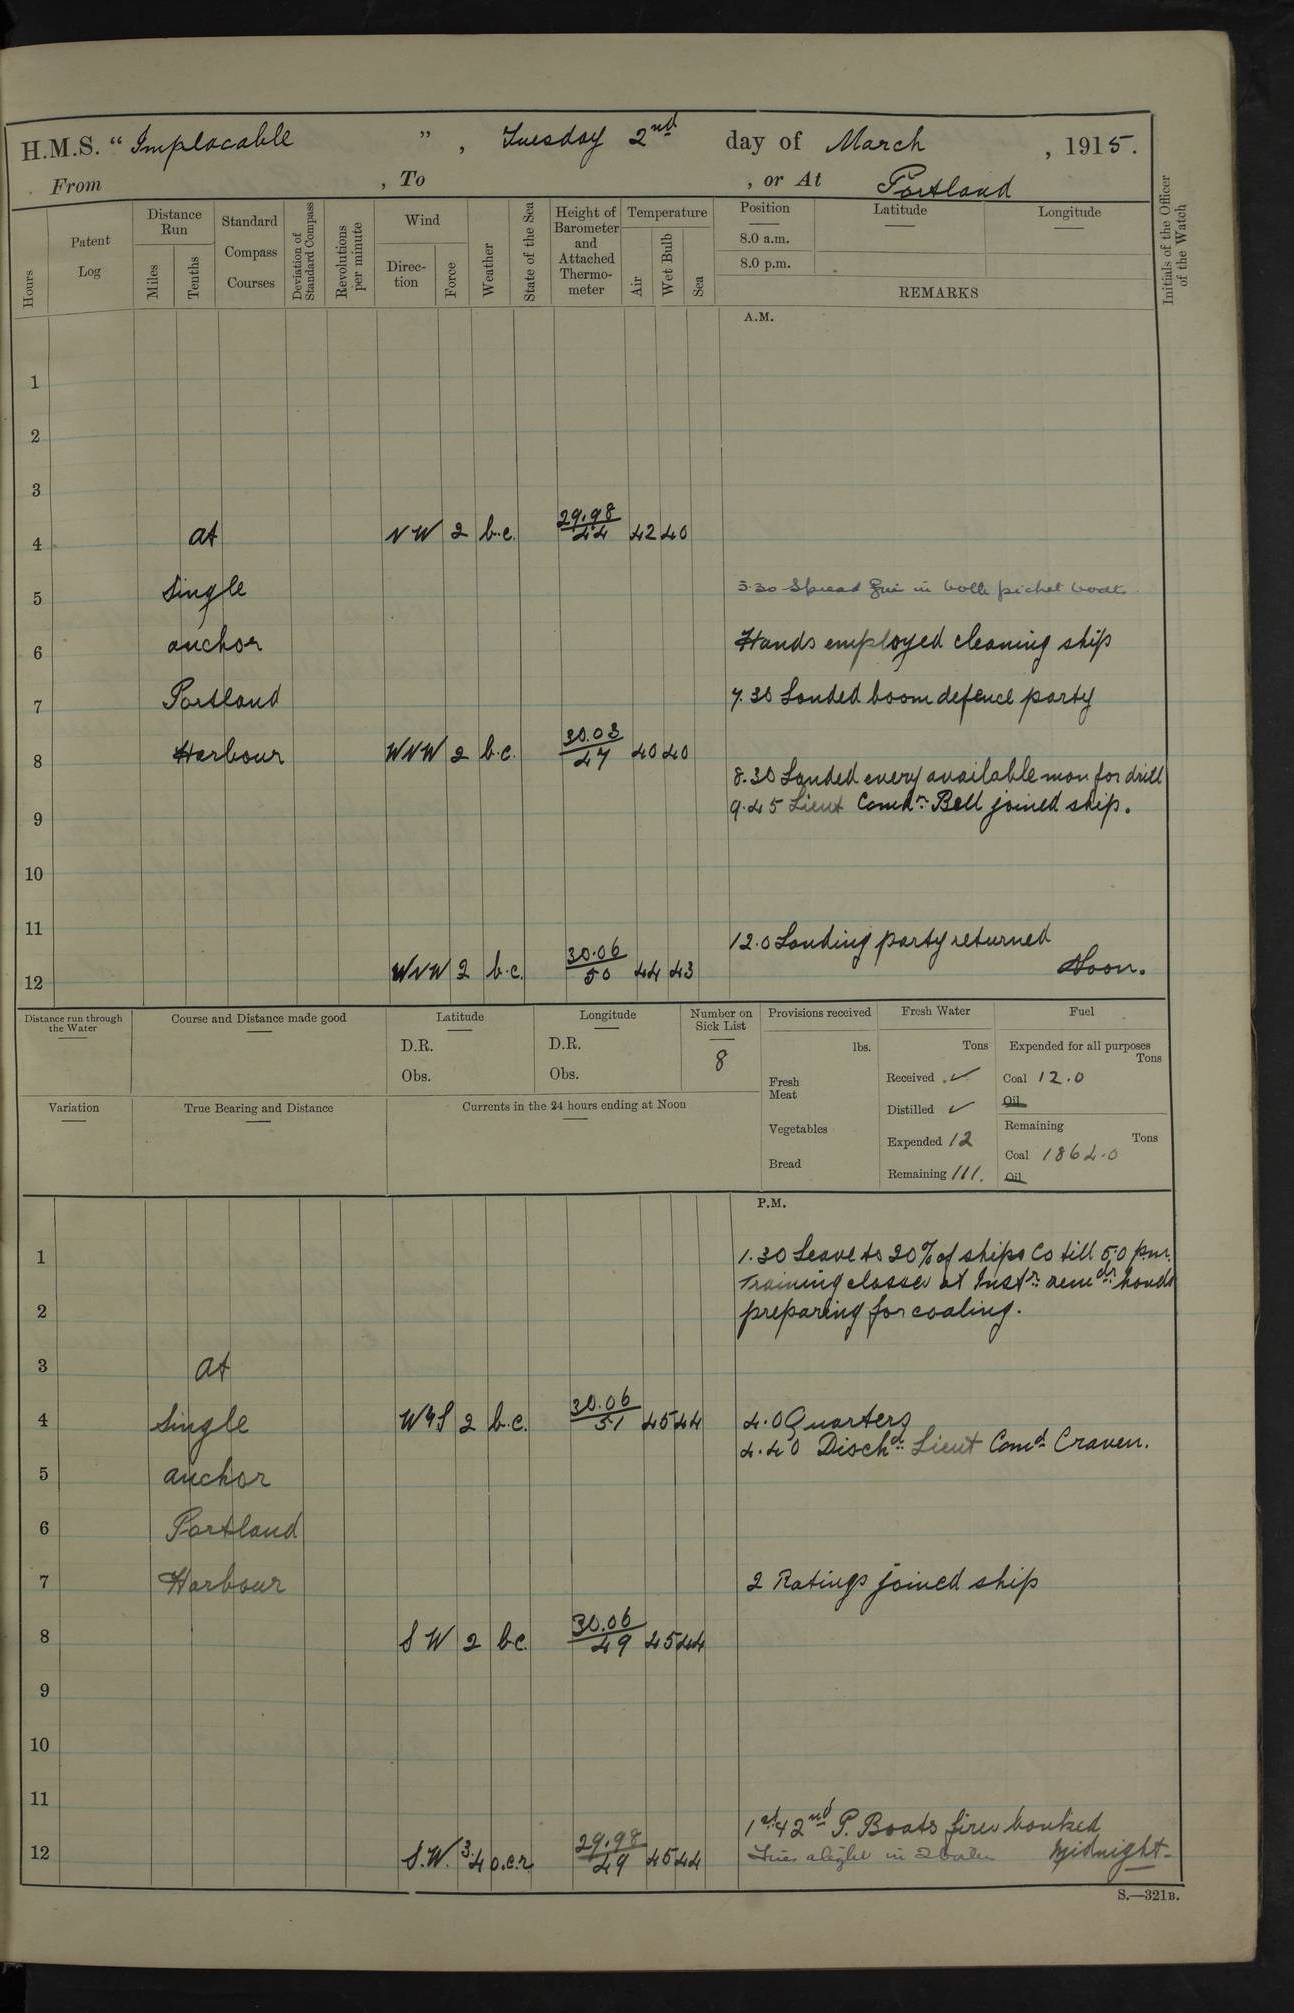 H.M.S. "Implacable", Tuesday 2nd day of March, 1915.
From , To , or At Portland
Hours
Patent Log
Distance Run
Miles
Tenths
Standard Compass Courses
Deviation of Standard Compass
Revolutions per minute
Wind
Direction
Force
Weather
State of the Sea
Height of Barometer and Attached Thermometer
Temperature
Air
Wet Bulb
Sea
Position
8.0 a.m.
8.0 p.m.
Latitude
Longitude
REMARKS
Initials of the Officer of the Watch
A.M.
1
2
3
4 at NW 2 b.c. 29.98/44 42 40
5 Single
3.30 Spread fire in both picket boats
6 anchor Hands employed cleaning ship
7 Portland 7.30 Landed boom defence party
8 Harbour WNW 2 b.c. 30.03/47 40 40
8.30 Landed every available man for drill
9 9.45 Lieut Comdr. Bell joined ship.
10
11
12.0 Landing party returned
12 WNW 2 b.c. 30.06/50 44 43 Noon.
Distance run through the Water
Course and Distance made good
Latitude
D.R.
Obs.
Longitude
D.R.
Obs.
Number on Sick List
8
Provisions received
lbs.
Fresh Meat
Vegetables
Bread
Fresh Water
Tons
Received ✓
Distilled ✓
Expended 12
Remaining 111.
Fuel
Expended for all purposes
Tons
Coal 12.0
Oil
Remaining
Tons
Coal 1862.0
Oil
Variation
True Bearing and Distance
Currents in the 24 hours ending at Noon
P.M.
1 1.30 Leave to 20% of ships Co till 5.0 p.m.
Training classes at Instn. remdr. hands
2 preparing for coaling.
3 at
4 Single W4S 2 b.c. 30.06/51 45 44 4.0 Quarters
4.40 Dischd. Lieut Comd. Craven.
5 anchor
6 Portland
7 Harbour 2 Ratings joined ship
8 SW 2 bc. 30.06/49 45 44
9
10
11
1st & 2nd P. Boats fires banked
12 S.W. 3.4 o.c.r. 29.98/49 45 44 Fires alight in 2 boilers Midnight
S.—321B.